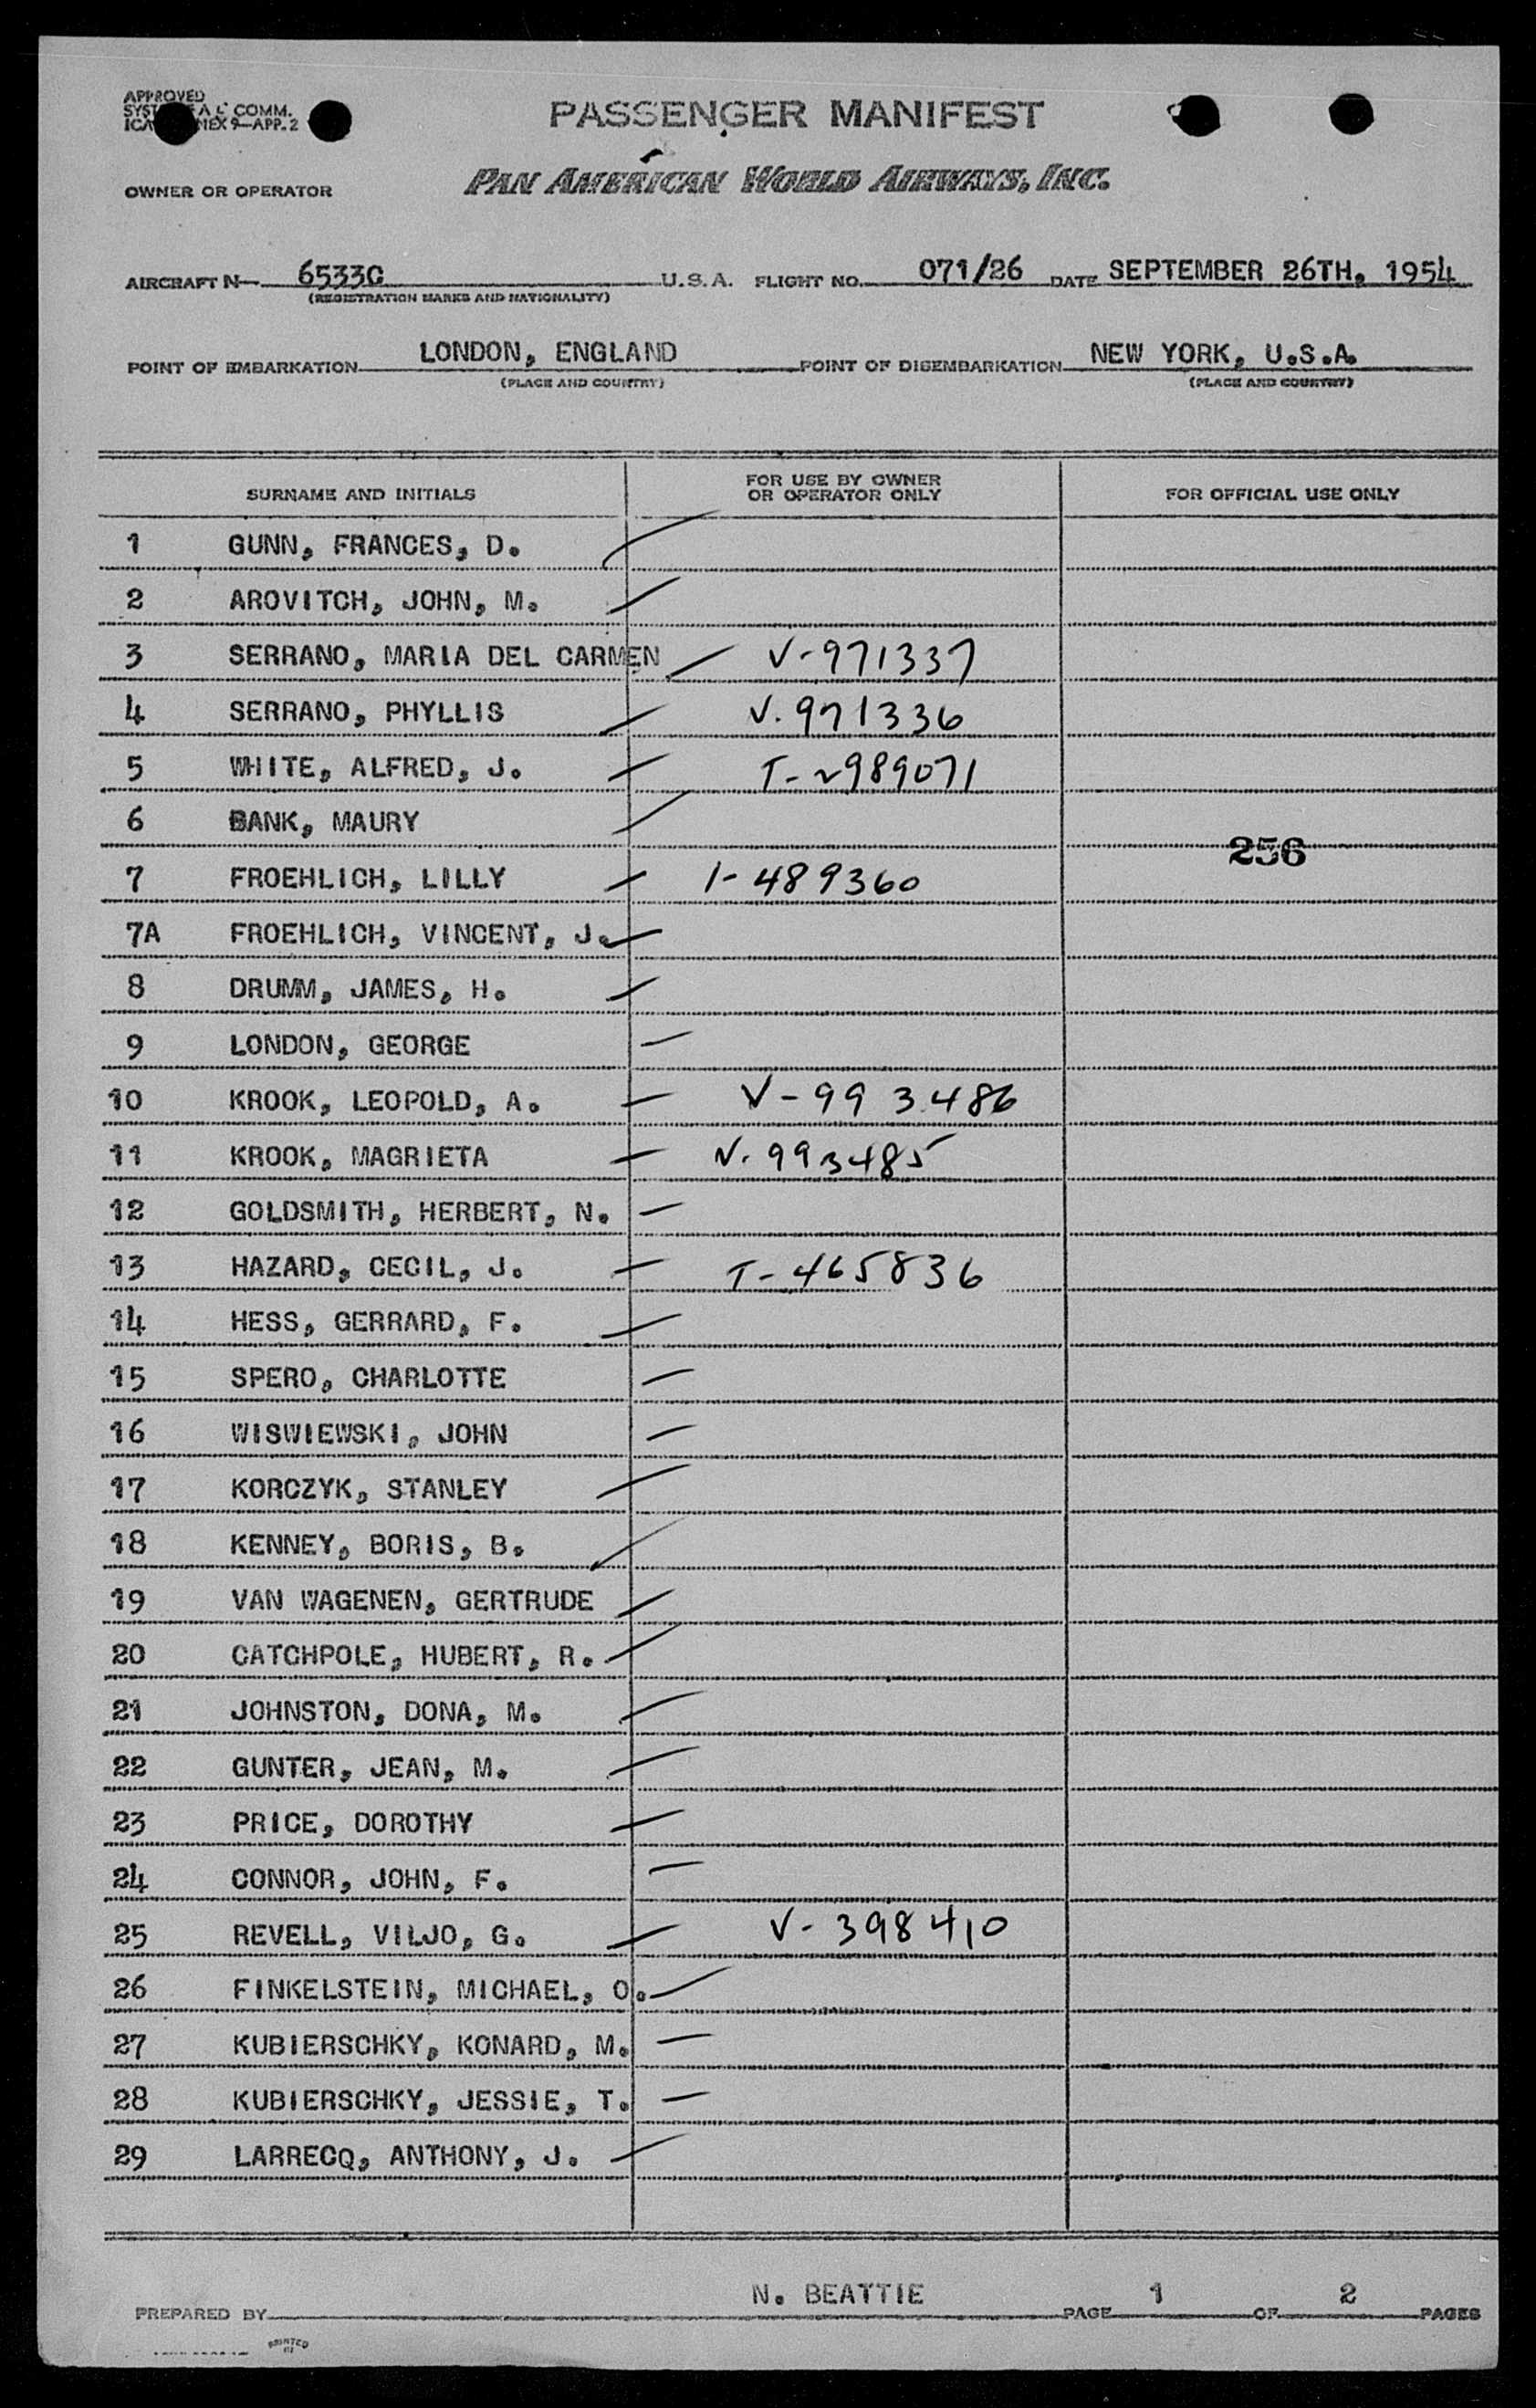 APPROVED
COMM.
9-APP. 2
PASSENGER MANIFEST
PAN AMERICAN WORLD AIRWAYS, INC.
OWNER OR OPERATOR
AIRCRAFT N- 6533C U.S.A. FLIGHT NO. 071/26 DATE SEPTEMBER 26TH, 1954
(REGISTRATION MARKS AND NATIONALITY)
POINT OF EMBARKATION LONDON, ENGLAND POINT OF DISEMBARKATION NEW YORK, U.S.A.
(PLACE AND COUNTRY) (PLACE AND COUNTRY)
SURNAME AND INITIALS FOR USE BY OWNER OR OPERATOR ONLY FOR OFFICIAL USE ONLY
1 GUNN, FRANCES, D.
2 AROVITCH, JOHN, M.
3 SERRANO, MARIA DEL CARMEN V-971337
4 SERRANO, PHYLLIS V.971336
5 WHITE, ALFRED, J. T-2989071
6 BANK, MAURY
256
7 FROEHLICH, LILLY 1-489360
7A FROEHLICH, VINCENT, J.
8 DRUMM, JAMES, H.
9 LONDON, GEORGE
10 KROOK, LEOPOLD, A. V-993486
11 KROOK, MAGRIETA V.993485
12 GOLDSMITH, HERBERT, N.
13 HAZARD, CECIL, J. T-465836
14 HESS, GERRARD, F.
15 SPERO, CHARLOTTE
16 WISWIEWSKI, JOHN
17 KORCZYK, STANLEY
18 KENNEY, BORIS, B.
19 VAN WAGENEN, GERTRUDE
20 CATCHPOLE, HUBERT, R.
21 JOHNSTON, DONA, M.
22 GUNTER, JEAN, M.
23 PRICE, DOROTHY
24 CONNOR, JOHN, F.
25 REVELL, VILJO, G. V-398410
26 FINKELSTEIN, MICHAEL, O.
27 KUBIERSCHKY, KONARD, M.
28 KUBIERSCHKY, JESSIE, T.
29 LARRECQ, ANTHONY, J.
PREPARED BY N. BEATTIE PAGE 1 OF 2 PAGES
PRINTED